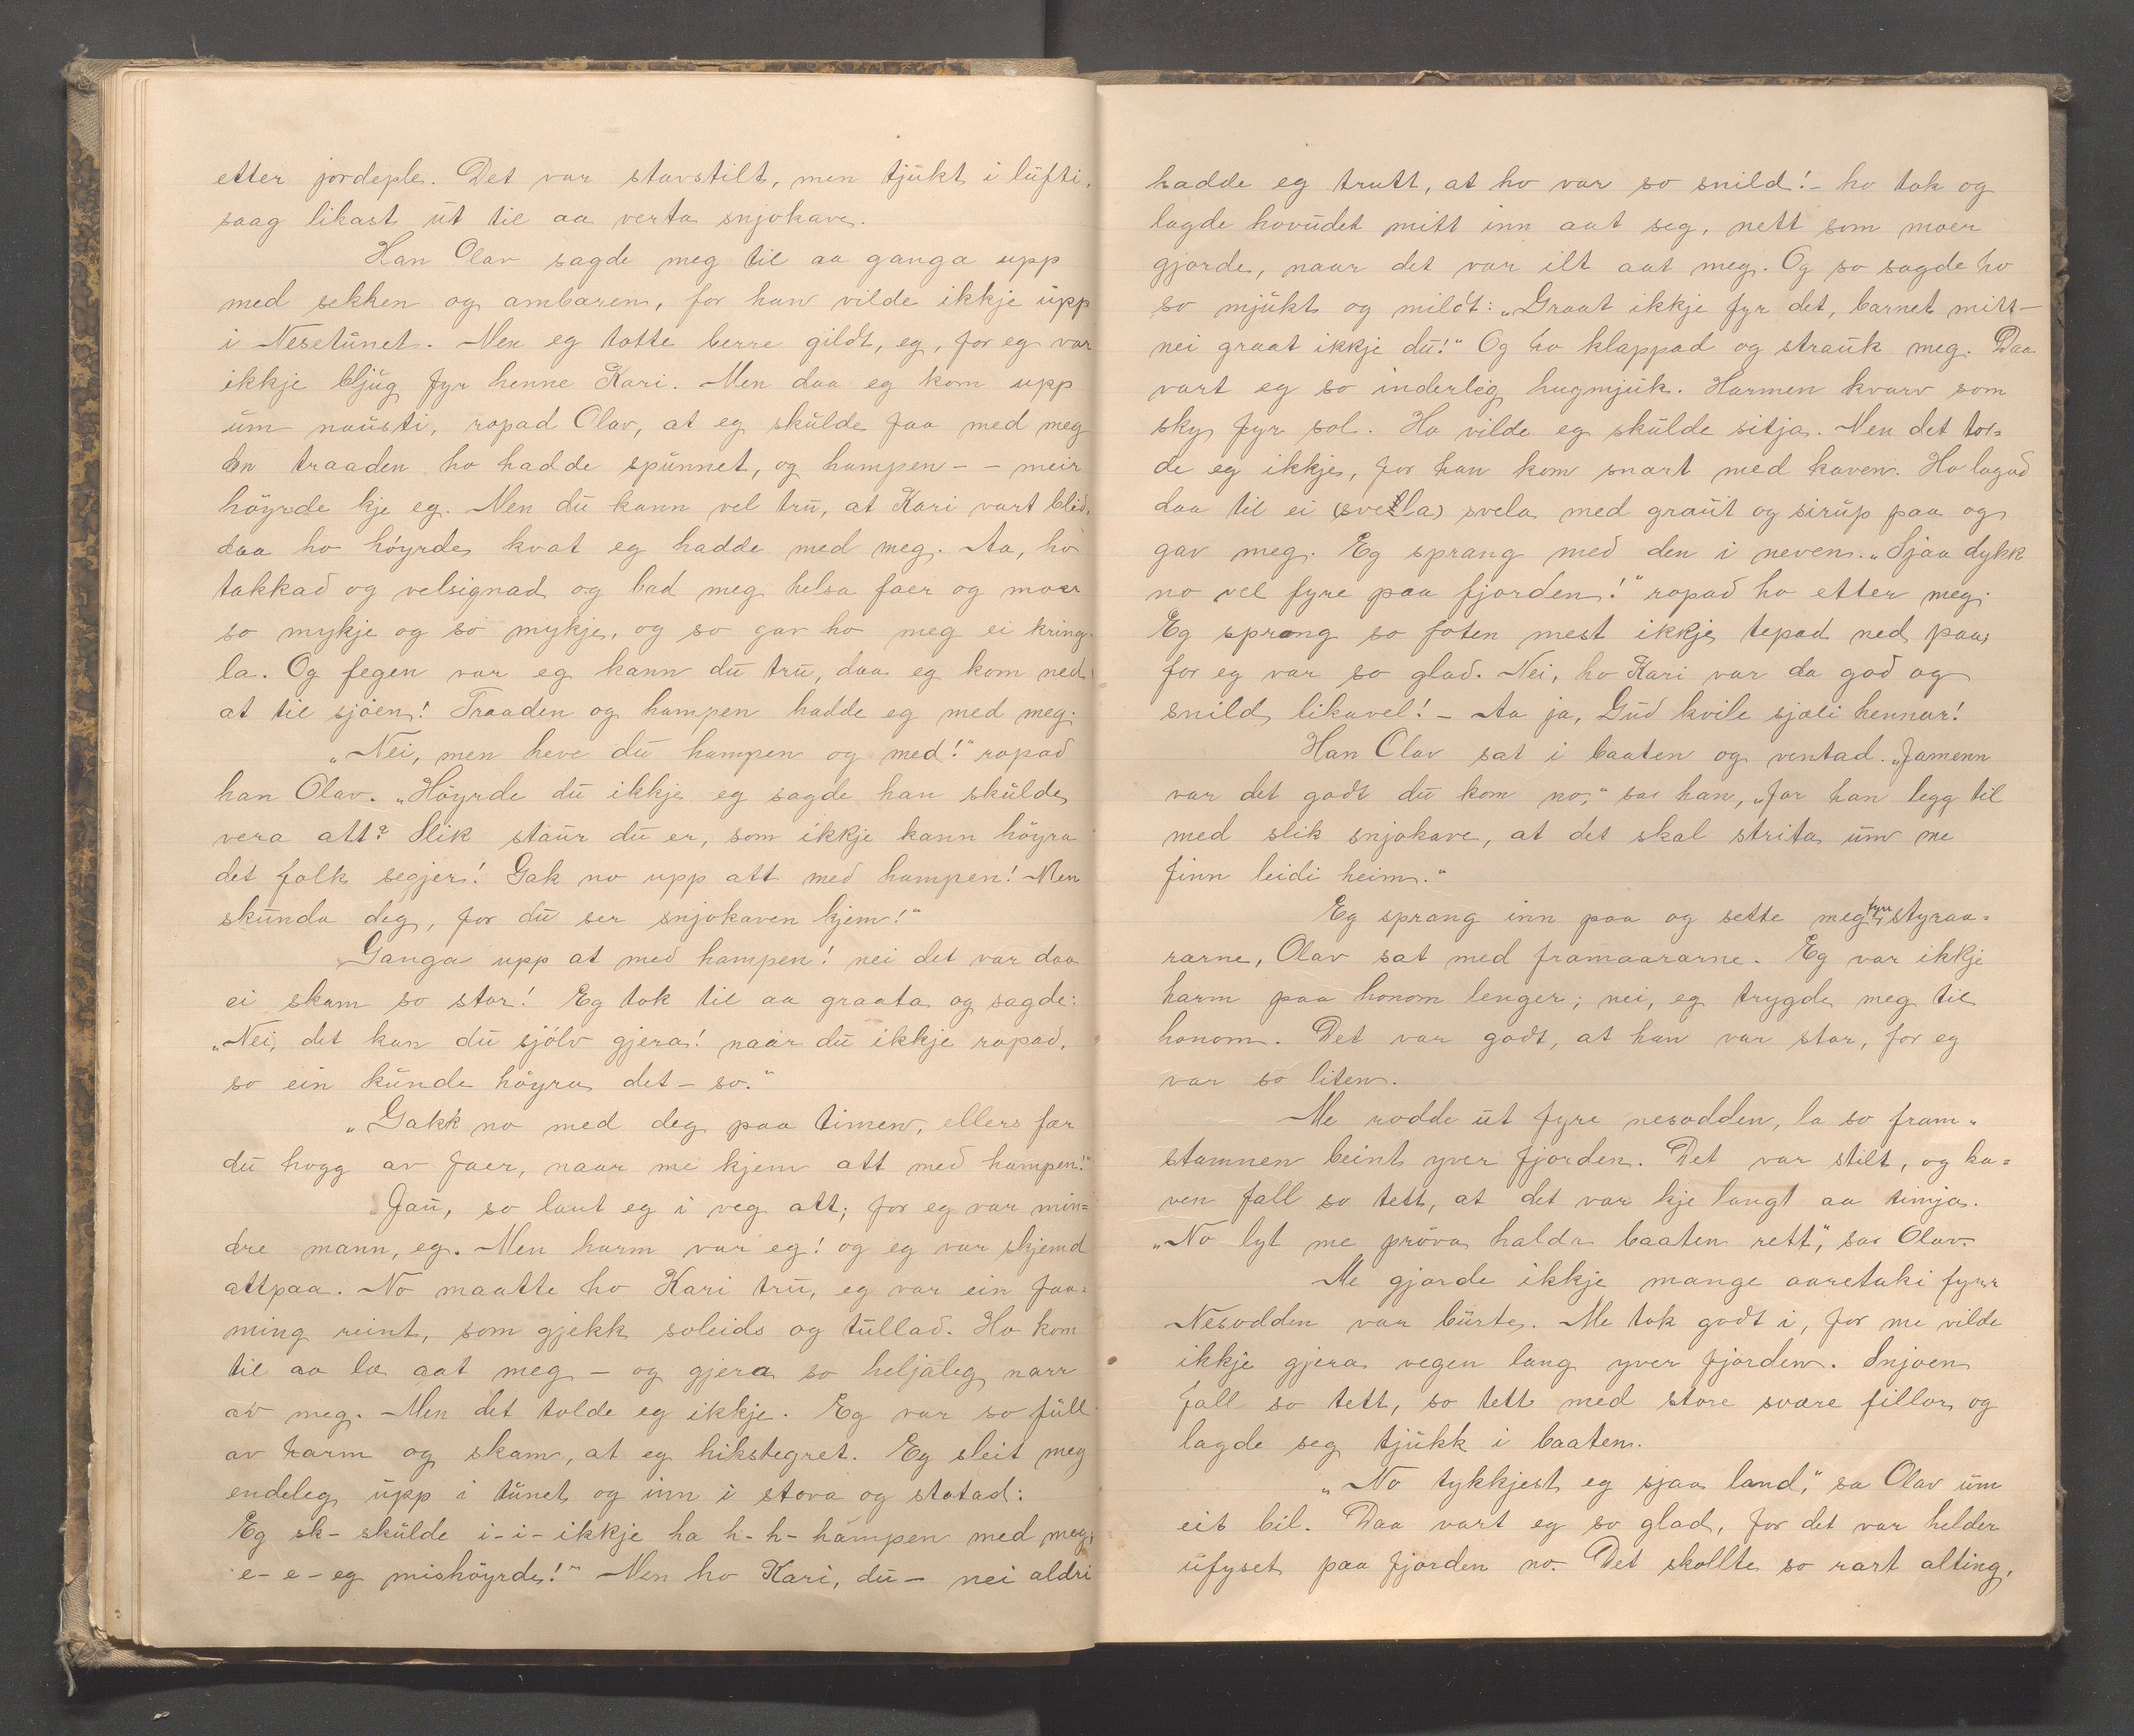 etter jordeple. Det var stavstilt, men tjukt i lufti,
saag likast ut til aa verta snjokave.
Han Olav sagde meg til aa ganga upp
med sekken og ambaren, for han vilde ikkje upp
i Nesetunet. Men eg totte berre gildt, eg, for eg var
ikkje bljug fyr henne Kari. Men daa eg kom upp
um nausti, ropad Olav, at eg skulde faa med meg
en traaden ho hadde spunnet, og hampen - - meir
höyrde kje eg. Men du kann vel tru, at Kari vart blid,
daa ho höyrde kvat eg hadde med meg. Aa, ho
takkad og velsignad og bad meg helsa faer og moer
so mykje og so mykje, og so gav ho meg ei kring-
la. Og fegen var eg kann du tru, daa eg kom ned
at til sjöen! Traaden og hampen hadde eg med meg.
„Nei, men heve du hampen og med!" ropad
han Olav. „Höyrde du ikkje eg sagde han skulde
vera att? Slik staur du er, som ikkje kann höyra
det folk segjer! Gak no upp att med hampen! Men
skunda deg, for du ser snjokaven kjem!"
Ganga upp at med hampen! nei det var daa
ei skam so stor! Eg tok til aa graata og sagde:
„Nei, det kan du sjölv gjera! naar du ikkje ropad,
so ein kunde höyra det - so."
„Gakk no med deg paa timen, ellers fær
du hogg av faer, naar me kjem att med hampen!"
Jau, so laut eg i veg att; for eg var min=
dre mann, eg. Men harm var eg! og eg var skjemd
attpaa. No maatte ho Kari tru, eg var ein faa=
ming reint, som gjekk soleids og tullad. Ho kom
til aa læ aat meg - og gjera so heljaleg narr
av meg. Men det tolde eg ikkje. Eg var so full
av harm og skam, at eg hikstegret. Eg sleit meg
endeleg upp i tunet og inn i stova og statad:
Eg sk- skulde i-i-ikkje ha h-h-hampen med meg,
e-e-eg mishöyrde!" Men ho Kari, du - nei aldri
hadde eg trutt, at ho var so snild! - ho tok og
lagde hovudet mitt inn aat seg, nett som moer
gjorde, naar det var ilt aat meg. Og so sagde ho
so mjukt og mildt: „Graat ikkje fyr det, barnet mitt -
nei graat ikkje du!" Og ho klappad og strauk meg. Daa
vart eg so inderleg hugmjuk. Harmen kvarv som
sky fyr sol. Ho vilde eg skulde sitja. Men det tor=
de eg ikkje, for han kom snart med kaven. Ho lagad
daa til ei (svella) svela med graut og sirup paa og
gav meg. Eg sprang med den i neven. „Sjaa dykk
no vel fyre paa fjorden!" ropad ho etter meg.
Eg sprang so foten mest ikkje tepad ned paa,
for eg var so glad. Nei, ho Kari var da god og
snild likavel! - Aa ja, Gud kvile sjæli hennar!
Han Olav sat i baaten og ventad. „Jamenn
var det godt du kom no," sa han, „for han legg til
med slik snjokave, at det skal strita um me
finn leidi heim."
Eg sprang inn paa og sette meg fyre styraa=
rarne, Olav sat med framaararne. Eg var ikkje
harm paa honom lenger; nei, eg trygde meg til
honom. Det var godt, at han var stor, for eg
var so liten.
Me rodde ut fyre nesodden, la so fram=
stamnen beint yver fjorden. Det var stilt, og ka=
ven fall so tett, at det var kje langt aa timja.
„No lyt me pröva halda baaten rett", sa Olav.
Me gjorde ikkje mange aaretaki fyrr
Nesodden var burte. Me tok godt i, for me vilde
ikkje gjera vegen lang yver fjorden. Snjoen
fall so tett, so tett med store svære fillor og
lagde seg tjukk i baaten.
„No tykkjest eg sjaa land," sa Olav um
eit bil. Daa vart eg so glad, for det var helder
ufyset paa fjorden no. Det skollte so rart alting,